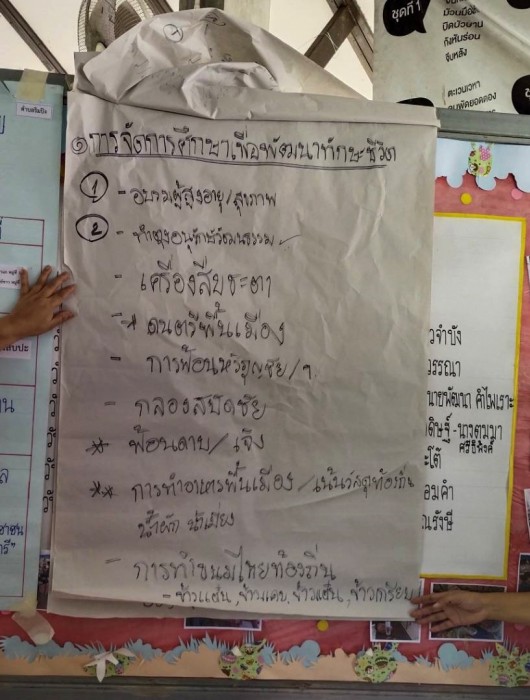 ชุดที่ 1
ม้วนมือ
ปิดบัวบาน
กังหันร่อน
ตะเวนเวหา
① การจัดการศึกษาเพื่อพัฒนาทักษะชีวิต
① - อบรมผู้สูงอายุ/สุขภาพ
② - อนุรักษ์วัฒนธรรม
- เครื่องสืบชะตา
- * ดนตรีพื้นเมือง
- การฟ้อนหริภุญชัย/ๆ
- กลองสบัดชัย
* ฟ้อนดาบ/เจิง
** การทำอาหารพื้นเมือง/เน้นวัสดุท้องถิ่น
น้ำผัก น้ำเมี่ยง
- การทำขนมไทยท้องถิ่น
- ข้าวแต๋น, ข้าวแคบ, ข้าวแต๋น, ข้าวเกรียบ
วจำบัง
วรรณา
ายพัฒนา คำไพเราะ
ดิษฐ์ - นางตุมมา
ศรีธิพงศ์
ะโต้
อมคำ
ณรังษี